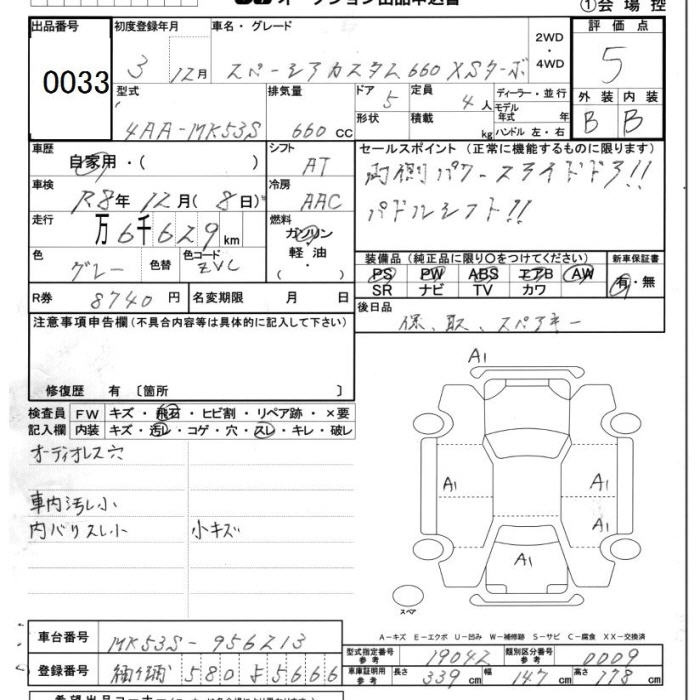 オークション出品申込書
①会場控
出品番号
0033
初度登録年月
3 12月
車名・グレード
スペーシアカスタム660 XSターボ
2WD
・
4WD
評価点
5
型式
4AA-MK53S
排気量
660 CC
ドア
5
形状
定員
4 人
積載
kg
ディーラー・並行
モデル
年式 年
ハンドル 左・右
外装 内装
B B
車歴
自家用・( )
シフト
AT
セールスポイント (正常に機能するものに限ります)
両側パワースライドドア!!
パドルシフト!!
車検
R8年12月(8日)
冷房
AAC
走行
万6千629km
燃料
ガソリン
軽油
・
色
グレー
色替
色コード
ZVC
装備品 (純正品に限り○をつけてください)
PS PW ABS エアB AW
SR ナビ TV カワ
新車保証書
有・無
R券 8740 円
名変期限 月 日
後日品
保、取、スペアキー
注意事項申告欄 (不具合内容等は具体的に記入して下さい)
修復歴 有 〔箇所 〕
検査員
記入欄
FW キズ・飛石・ヒビ割・リペア跡・×要
内装 キズ・汚レ・コゲ・穴・スレ・キレ・破レ
オーディオレス穴
車内汚レ小
内バリスレ小 小キズ
A1
A1
A1
A1
A1
スペア
A-キズ E-エクボ U-凹み W-補修跡 S-サビ C-腐食 XX-交換済
車台番号
MK53S-956213
登録番号
580 よ 5666
型式指定番号
参考
19042
類別区分番号
参考
0009
車庫証明用
参考
長さ 339 cm 幅 147 cm 高さ 178 cm